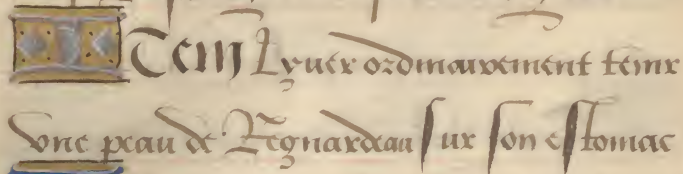 ITem Lyuer ordinairement tenir
vne peau de Regnardeau sur son estomac